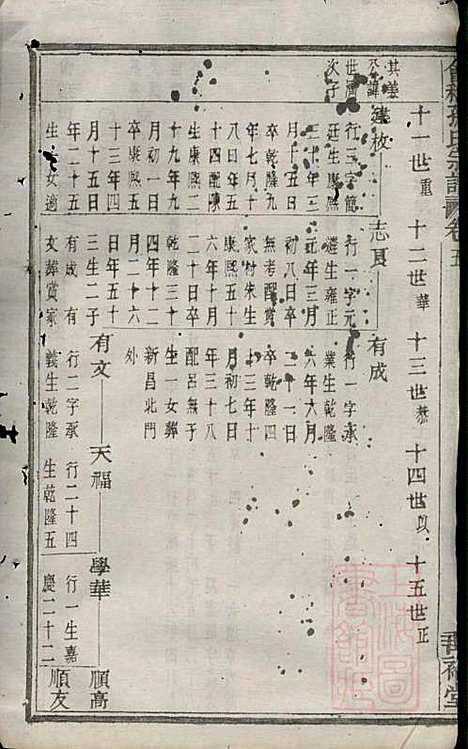 十一世重 十二世華 十三世恭 十四世以 十五世正
其義
公諱
世濟
次子
建枚
行三字簡
廷生康熙
三十年三
月十五日
卒乾隆九
年七月十
八日年五
十四配陳
生康熙二
十九年九
月初一日
卒康熙五
十三年四
月十五日
年二十五
生一女適
志夏
行一字元
遴生雍正
元年三月
初八日卒
無考配賞
家村朱生
康熙五十
二十日卒
乾隆三十
四年十二
月二十六
日年五十
三生二子
有成 有
文葬賞家
有成
行一字承
業生乾隆
六年六月
二十一日
卒乾隆四
十三年十
月初七日
年三十八
配呂無子
生一女葬
新昌北門
外
有文
行二字承
義生乾隆
天福
行二十四
生乾隆五
學華
行一生嘉
慶二十二
順高
順友
上海圖
書館藏